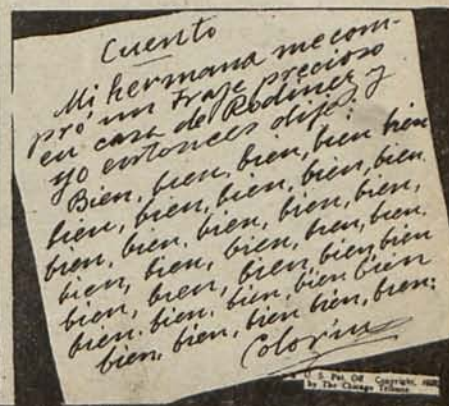 Cuento
Mi hermana me com-
pró un traje precioso
en casa de Rodinez y
yo entonces dije:
Bien, bien, bien, bien bien
bien, bien, bien, bien, bien,
bien, bien, bien, bien, bien,
bien, bien, bien, bien, bien,
bien, bien, bien bien bien
bien, bien, bien, bien bien
bien, bien, bien bien, bien:
Colorín
U. S. Pat. Off. Copyright,
by The Chicago Tribune